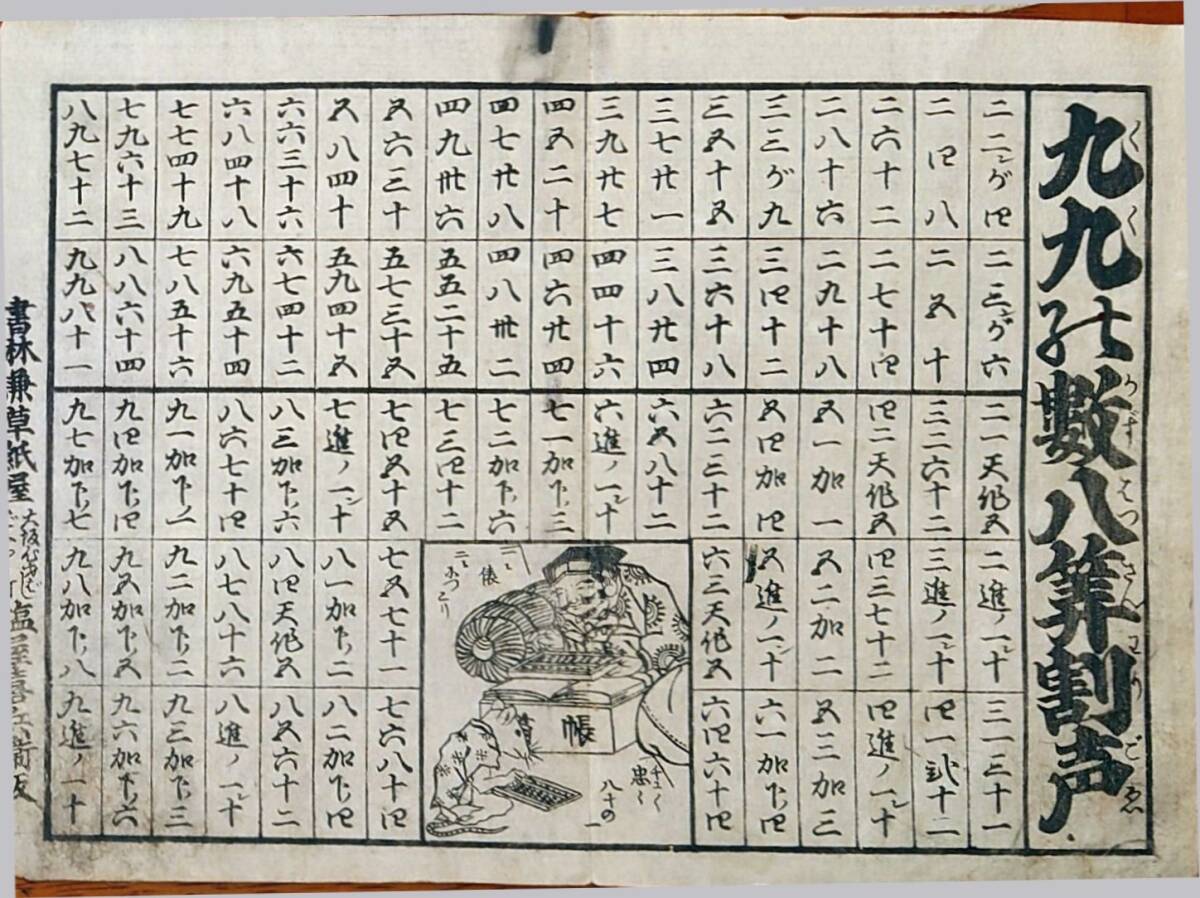 九九の數八算割声
くくのかずはつさんわりごゑ
二二ガ四
二三ガ六
二四八
二五十
二六十二
二七十四
二八十六
二九十八
三三ガ九
三四十二
三五十五
三六十八
三七廿一
三八廿四
三九廿七
四四十六
四五二十
四六廿四
四七廿八
四八卅二
四九卅六
五五二十五
五六三十
五七三十五
五八四十
五九四十五
六六三十六
六七四十二
六八四十八
六九五十四
七七四十九
七八五十六
七九六十三
八八六十四
八九七十二
九九八十一
二一天作五
二進ノ一十
三一三十一
三二六十二
三進ノ一十
四一弐十二
四二天作五
四三七十二
四進ノ一十
五一加一
五二加二
五三加三
五四加四
五進ノ一十
六一加下四
六二三十二
六三天作五
六四六十四
六五八十二
六進ノ一十
七一加下三
七二加下六
七三四十二
七四五十五
七五七十一
七六八十四
七進ノ一十
八一加下二
八二加下四
八三加下六
八四天作五
八五六十二
八六七十四
八七八十六
八進ノ一十
九一加下一
九二加下二
九三加下三
九四加下四
九五加下五
九六加下六
九七加下七
九八加下八
九進ノ一十
俵
につこり
帳
忠
八十の一
書林兼草紙屋
大坂
塩屋喜兵衛板